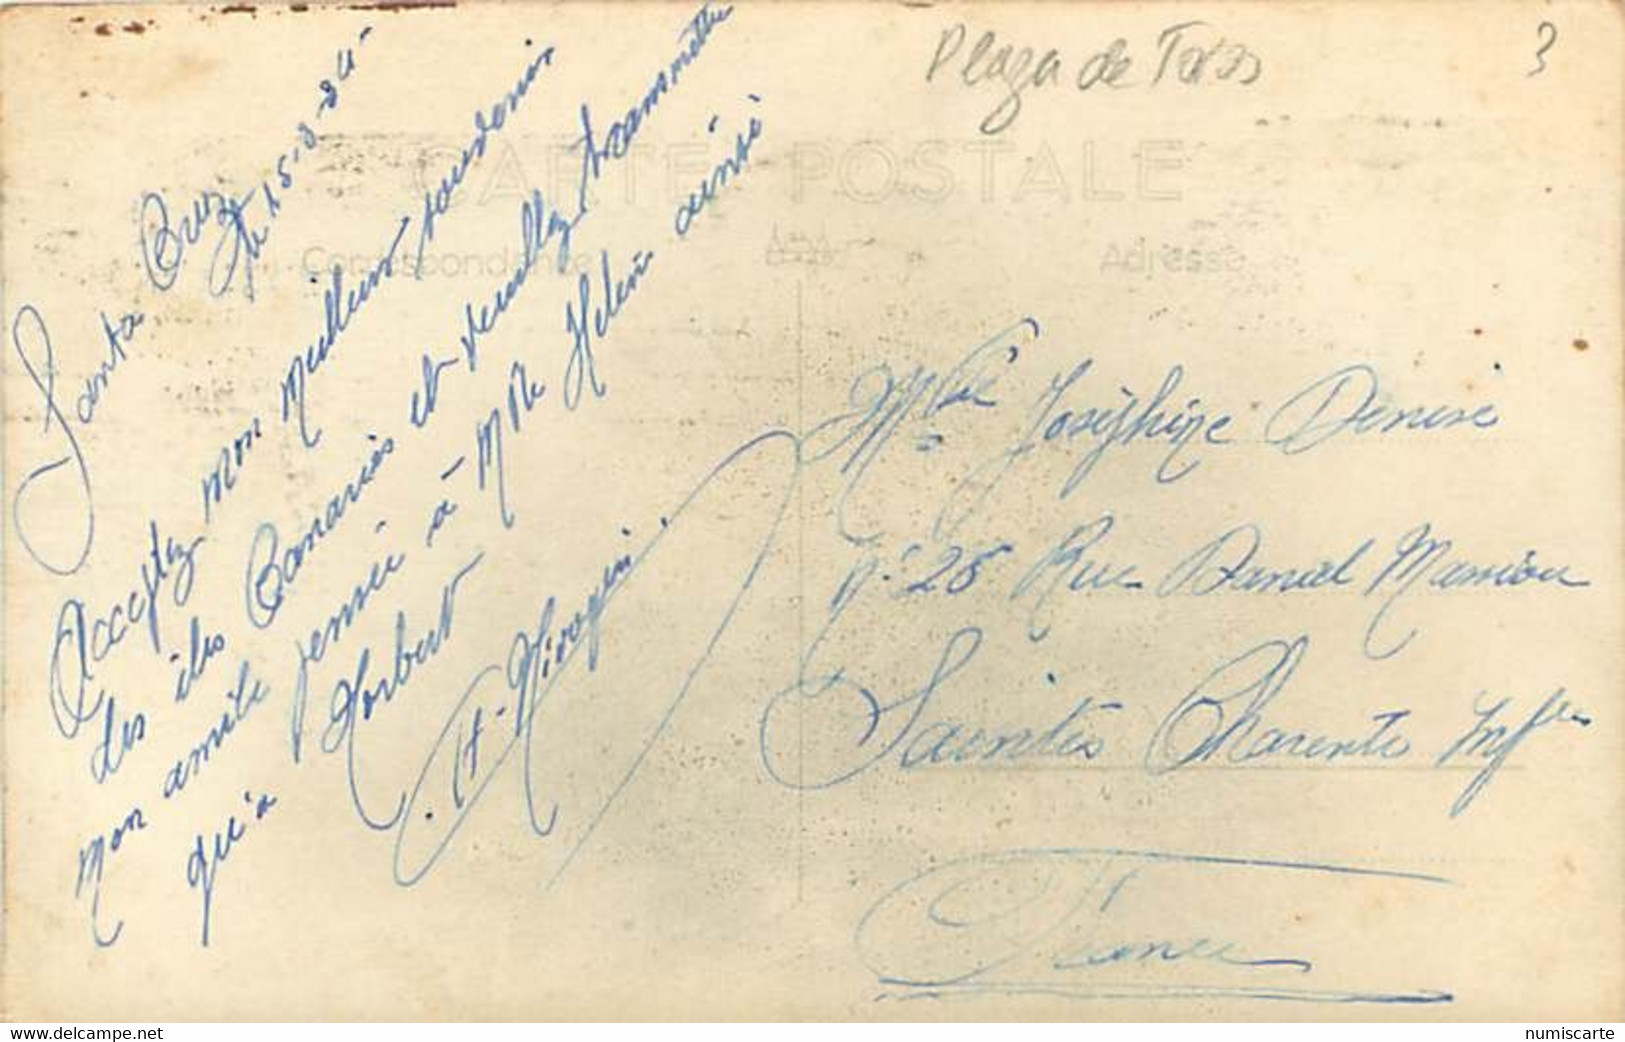 Plaza de Toros
3
CARTE POSTALE
Correspondance
Adresse
Santa Cruz
le 15-8-34
Acceptez mon meilleur souvenir
des îles Canaries et veuillez transmettre
mon amitié à Mlle Helène ainsi
qu'à Norbert
Mlle Joséphine Denise
N. 25 Rue Daniel Massiou
Saintes Charente Infre
France
www.delcampe.net
numiscarte